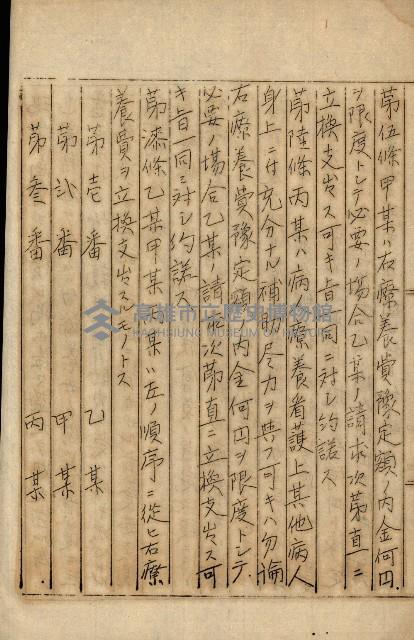 第伍條甲某ハ右療養費豫定額ノ内金何円
ヲ限度トシテ必要ノ場合乙某ノ請求次第直ニ
立換支出ス可キ旨一同ニ対シ約諾ス
第陸條丙某ハ病人療養看護上其他病人
身上ニ付充分ナル補助尽力ヲ與フ可キハ勿論
右療養費豫定額ノ内金何円ヲ限度トシテ
必要ノ場合乙某ノ請求次第直ニ立換支出ス可
キ旨一同ニ対シ約諾ス
第漆條乙某甲某丙某ハ左ノ順序ニ從ヒ右療
養費ヲ立換支出スモノトス
第壱番 乙某
第弍番 甲某
第參番 丙某
高雄市立歷史博物館
KAOHSIUNG MUSEUM OF HISTORY